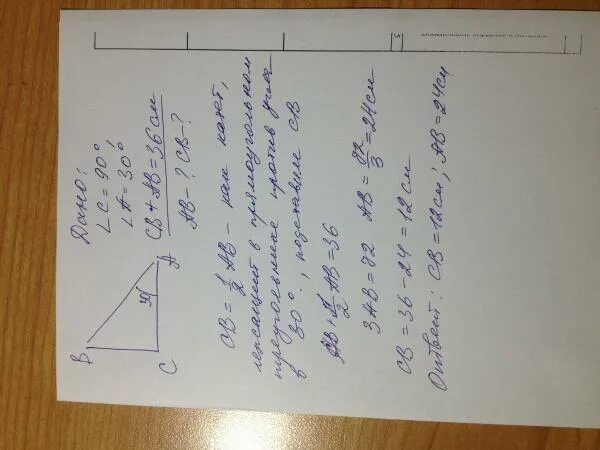 Дано:
∠C = 90°,
∠A = 30°
CB + AB = 36 см
AB - ? CB - ?
B
C
A
30
CB = 1/2 AB - как катет,
лежащий в прямоугольном
треугольнике против угла
в 30°, подставим CB
AB + 1/2 AB = 36
3AB = 72 AB = 72/3 = 24 см
CB = 36 - 24 = 12 см
Ответ: CB = 12 см; AB = 24 см